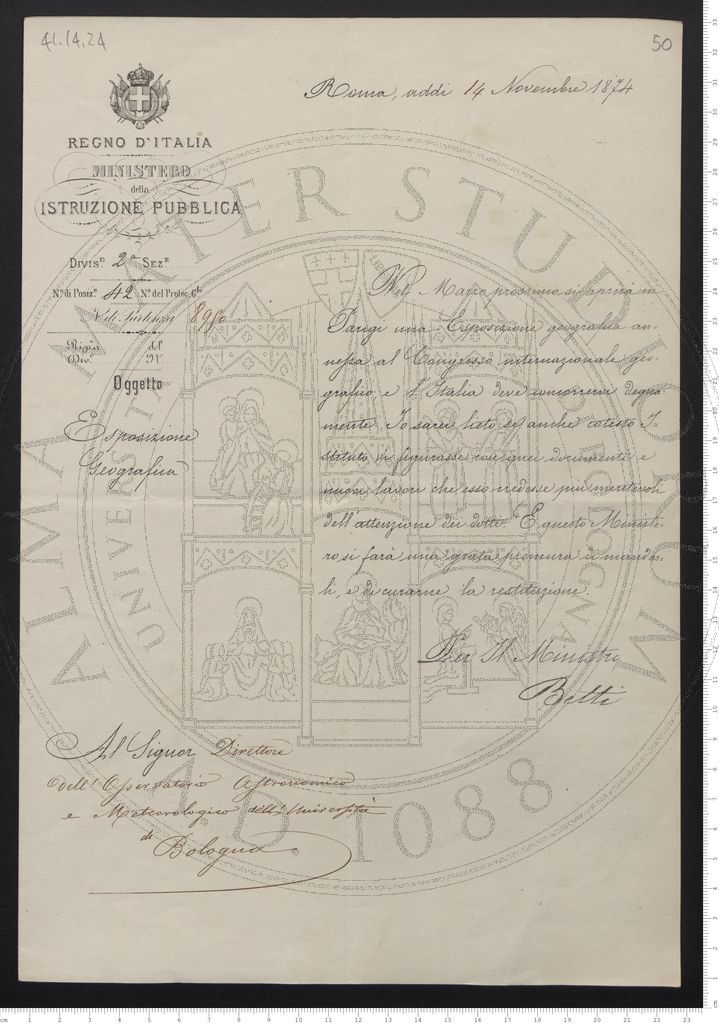 41.14.24
50
Roma, addi 14 Novembre 1874
REGNO D'ITALIA
MINISTERO
della
ISTRUZIONE PUBBLICA
Divis.e 2a Sez.e
N.o di Posiz.e 42 N.o del Protoc. G.le
8950
Oggetto
Esposizione
Geografica
Nel Marzo prossimo si aprirà in
Parigi una Esposizione geografica an-
nessa al Congresso internazionale geo-
grafico, e l'Italia deve concorrervi degna-
mente. Io sarei lieto se anche cotesto I-
stituto vi figurasse con quei documenti e
nuovi lavori che esso credesse più meritevoli
dell'attenzione dei dotti. E questo Ministe-
ro si farà una grata premura di mandar-
li, e di curarne la restituzione.
Per Il Ministro
Betti
Al Signor Direttore
dell'Osservatorio Astronomico
e Meteorologico dell'Università
di Bologna
ALMA MATER STUDIORUM
A.D. 1088